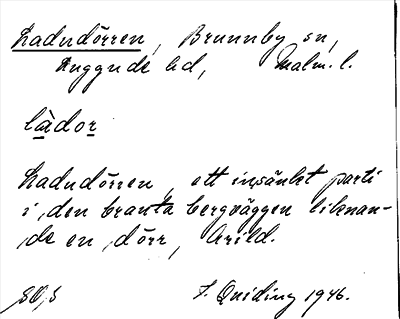 Ladudörren, Brunnby sn,
Luggude hd, Malm. l.
làdor
Ladudörren, ett insänkt parti
i den branta bergväggen liknan-
de en dörr, Arild.
F. Quiding 1946.